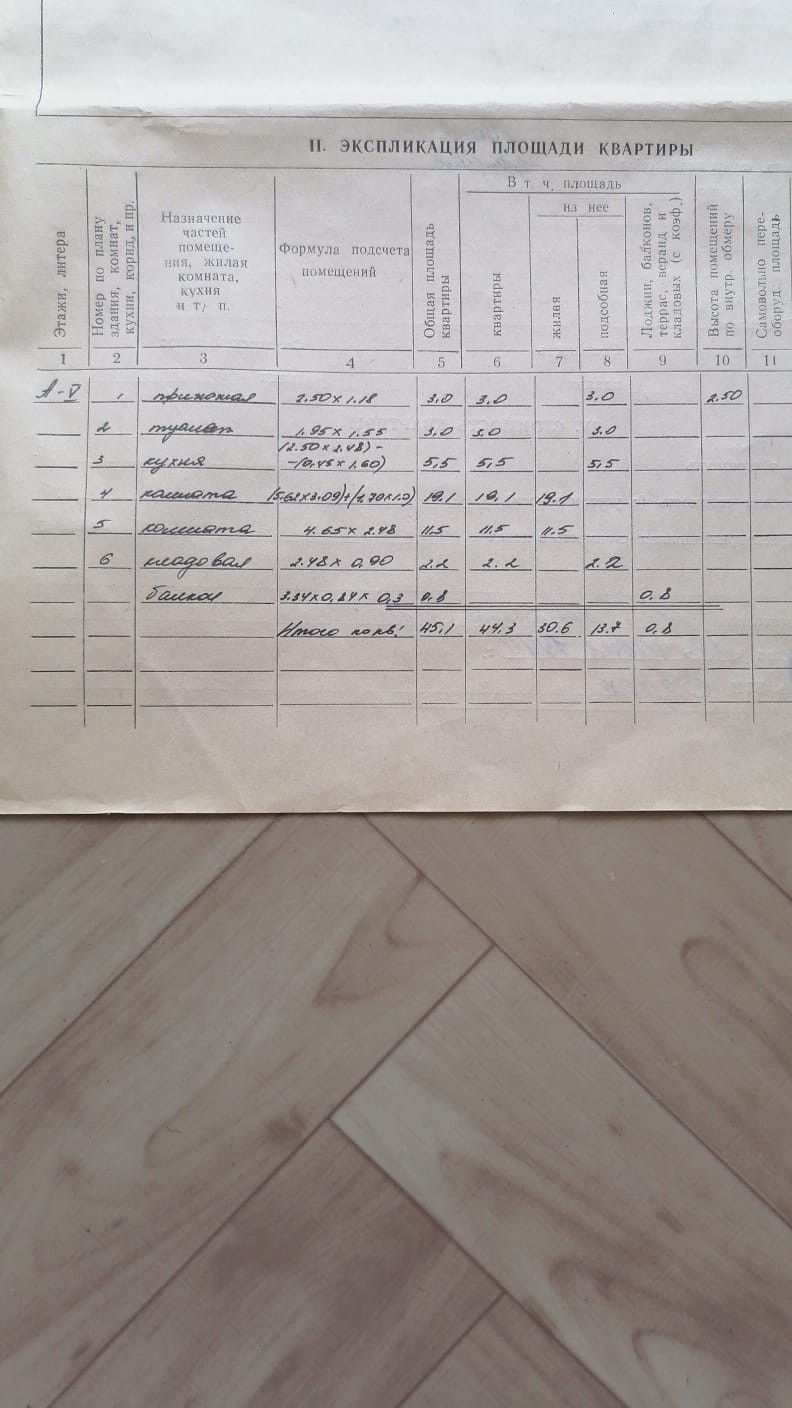 II. ЭКСПЛИКАЦИЯ ПЛОЩАДИ КВАРТИРЫ
Этажи, литера
Номер по плану здания, комнат, кухни, корид, и пр.
Назначение частей помеще-ния, жилая комната, кухня и т. п.
Формула подсчета помещений
Общая площадь квартиры
В т. ч. площадь
квартиры
из нее
жилая
подсобная
Лоджии, балконов, террас, веранд и кладовых (с коэф.)
Высота помещений по внутр. обмеру
Самовольно пере-оборуд. площадь
1 2 3 4 5 6 7 8 9 10 11
А-V 1 прихожая 2.50 х 1.18 3,0 3.0 3.0 2.50
2 туалет 1.95 х 1.55 3,0 3.0 3.0
(2.50 х 2.48) -
3 кухня -(0.45 х 1.60) 5,5 5,5 5,5
4 комната (5.62х3.09)+(1.70х1.0) 19.1 19,1 19.1
5 комната 4.65 х 2.48 11.5 11.5 11.5
6 кладовая 2.48 х 0,90 2.2 2.2 2.2
балкон 3.34х0,84х 0,3 0.8 0.8
Итого по кв: 45,1 44,3 30.6 13.7 0.8